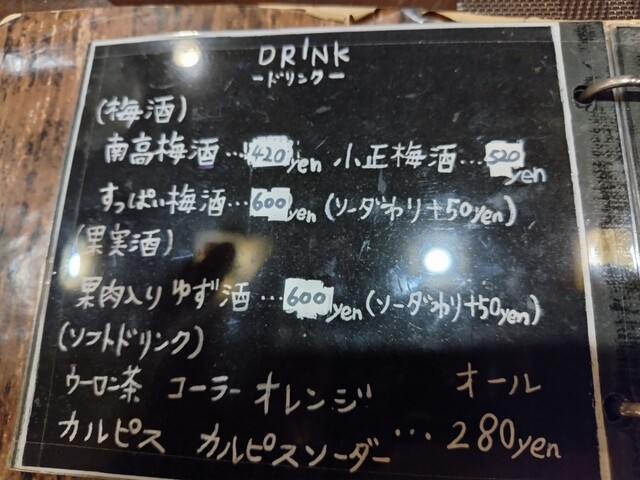 DRINK
ードリンクー
(梅酒)
南高梅酒…420yen 小正梅酒…520yen
すっぱい梅酒…600yen (ソーダわり+50yen)
(果実酒)
果肉入りゆず酒…600yen (ソーダわり+50yen)
(ソフトドリンク)
ウーロン茶 コーラー オレンジ オール
カルピス カルピスソーダー…280yen